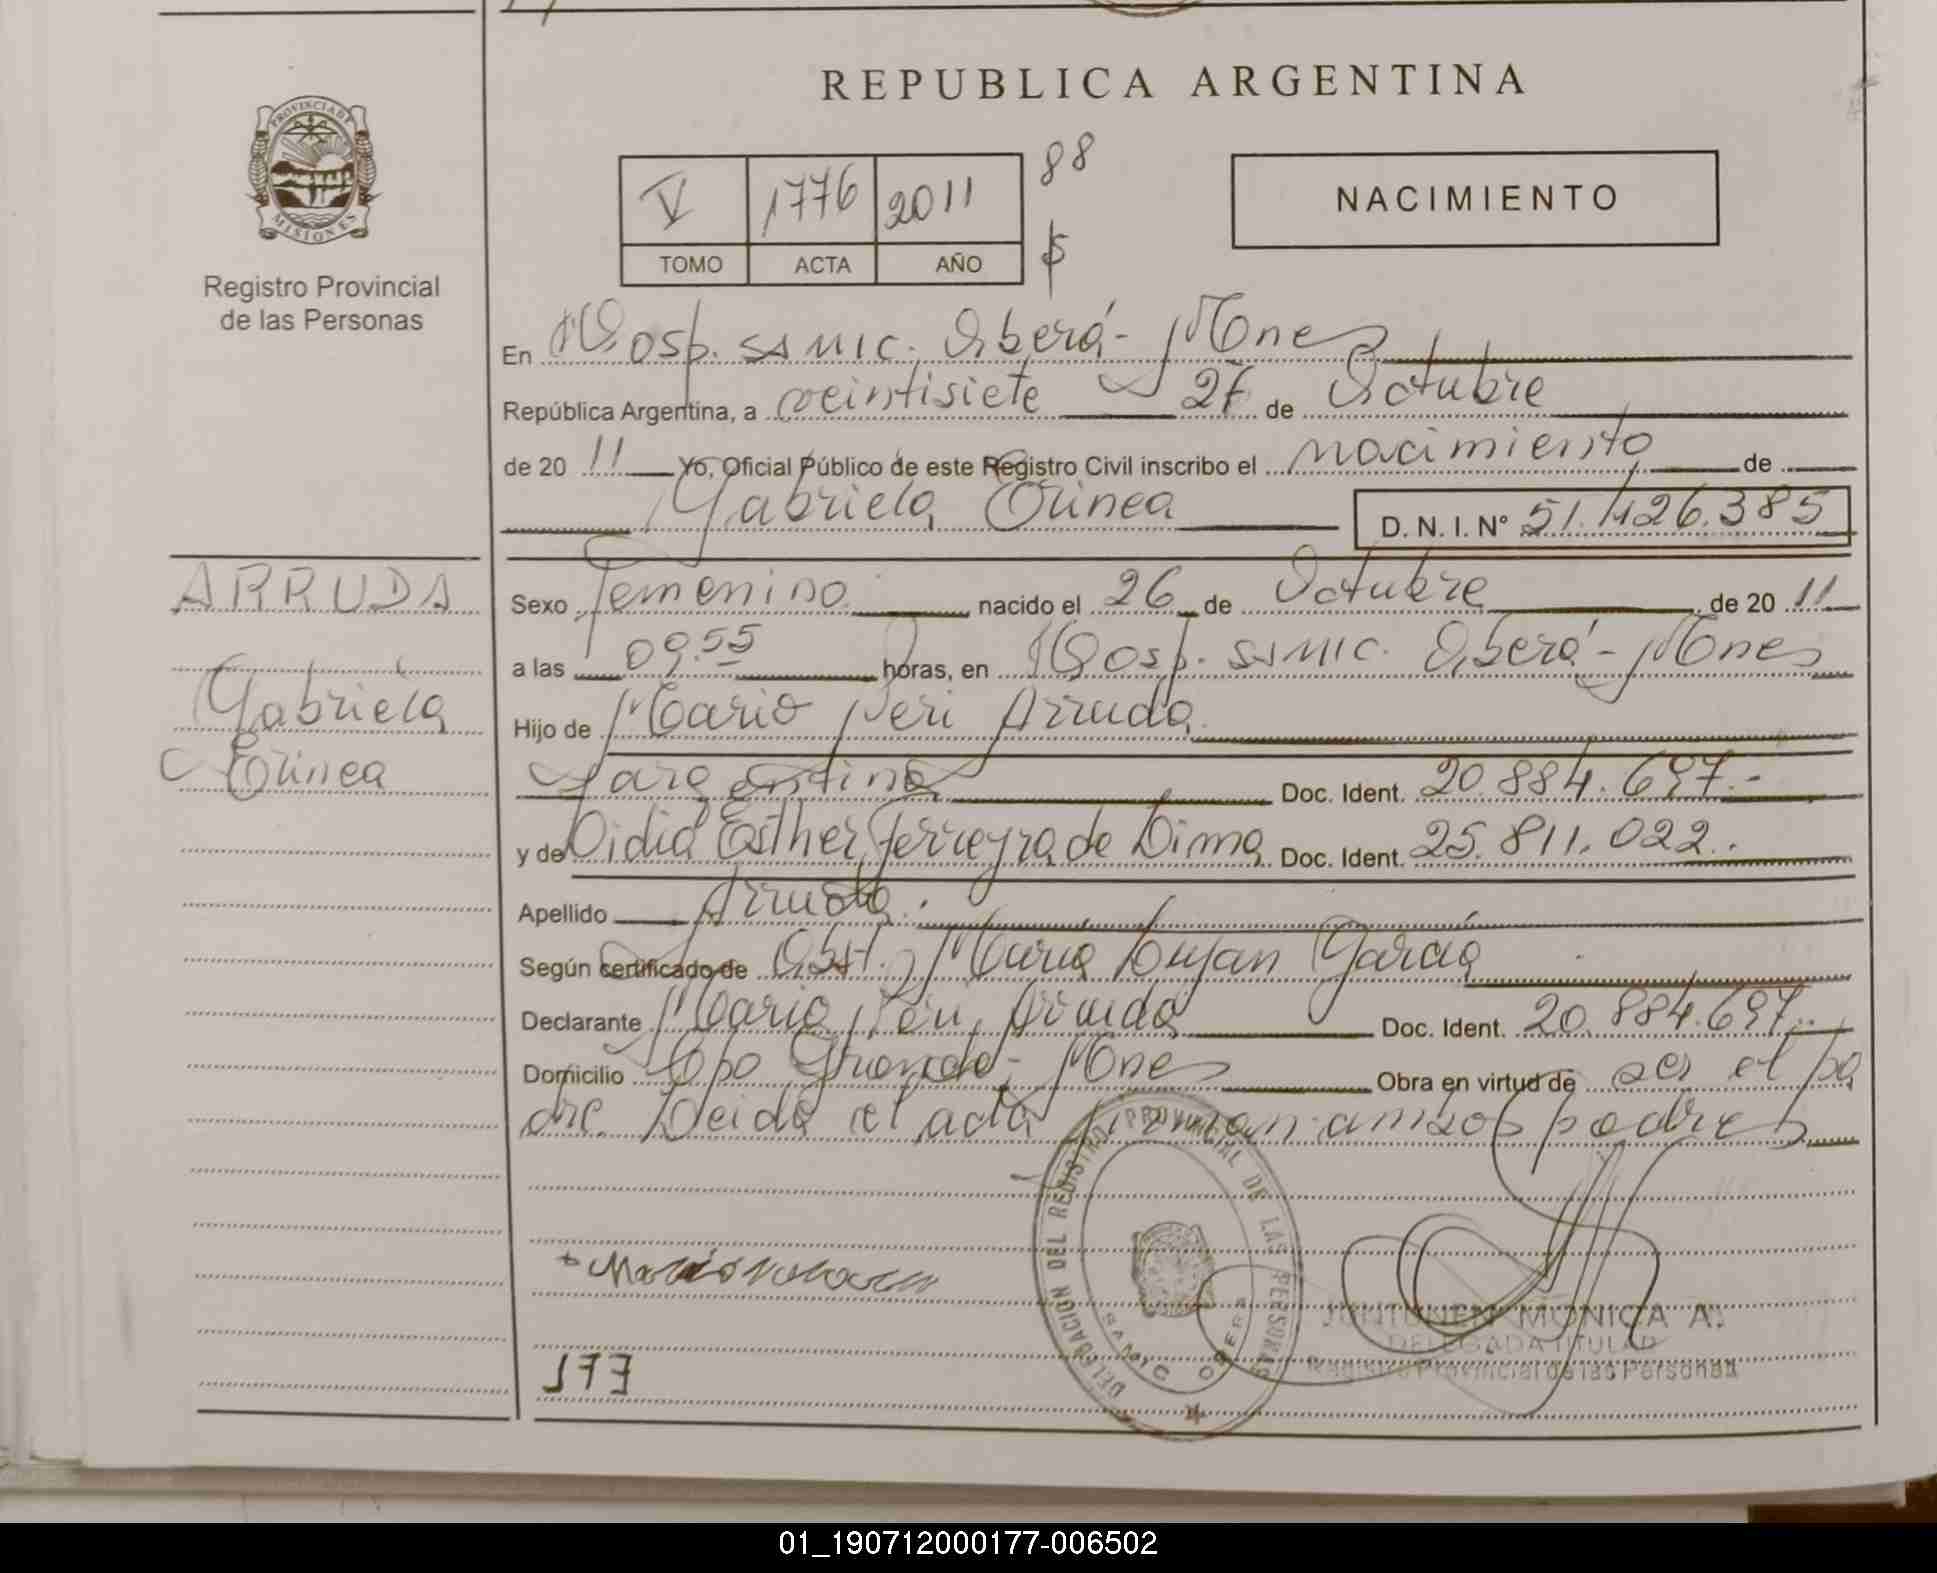 REPUBLICA ARGENTINA
PROVINCIA DE
MISIONES
Registro Provincial
de las Personas
V 1776 2011 88
TOMO ACTA AÑO
NACIMIENTO
En Hosp. SAMIC. Oberá - Mnes
República Argentina, a veintisiete 27 de Octubre
de 20 11 Yo, Oficial Público de este Registro Civil inscribo el nacimiento de
Gabriela Orinea D. N. I. Nº 51.426.385
ARRUDA
Gabriela
Orinea
Sexo Femenino nacido el 26 de Octubre de 20 11
a las 09.55 horas, en Hosp. SAMIC. Oberá - Mnes
Hijo de Mario Neri Arruda
argentina Doc. Ident. 20.884.697.-
y de Lidia Esther Ferreyra de Lima Doc. Ident. 25.811.022.
Apellido Arruda.
Según certificado de Obst. María Lujan García
Declarante Mario Neri Arruda Doc. Ident. 20.884.697.
Domicilio Cpo Grande - Mnes Obra en virtud de ser el pa
dre. Leida el acta firman ambos padres
DELEGACION DEL REGISTRO PROVINCIAL DE LAS PERSONAS
SAMIC OBERA
JUNTUNEN MONICA A.
DELEGADA TITULAR
Registro Provincial de las Personas
01_190712000177-006502